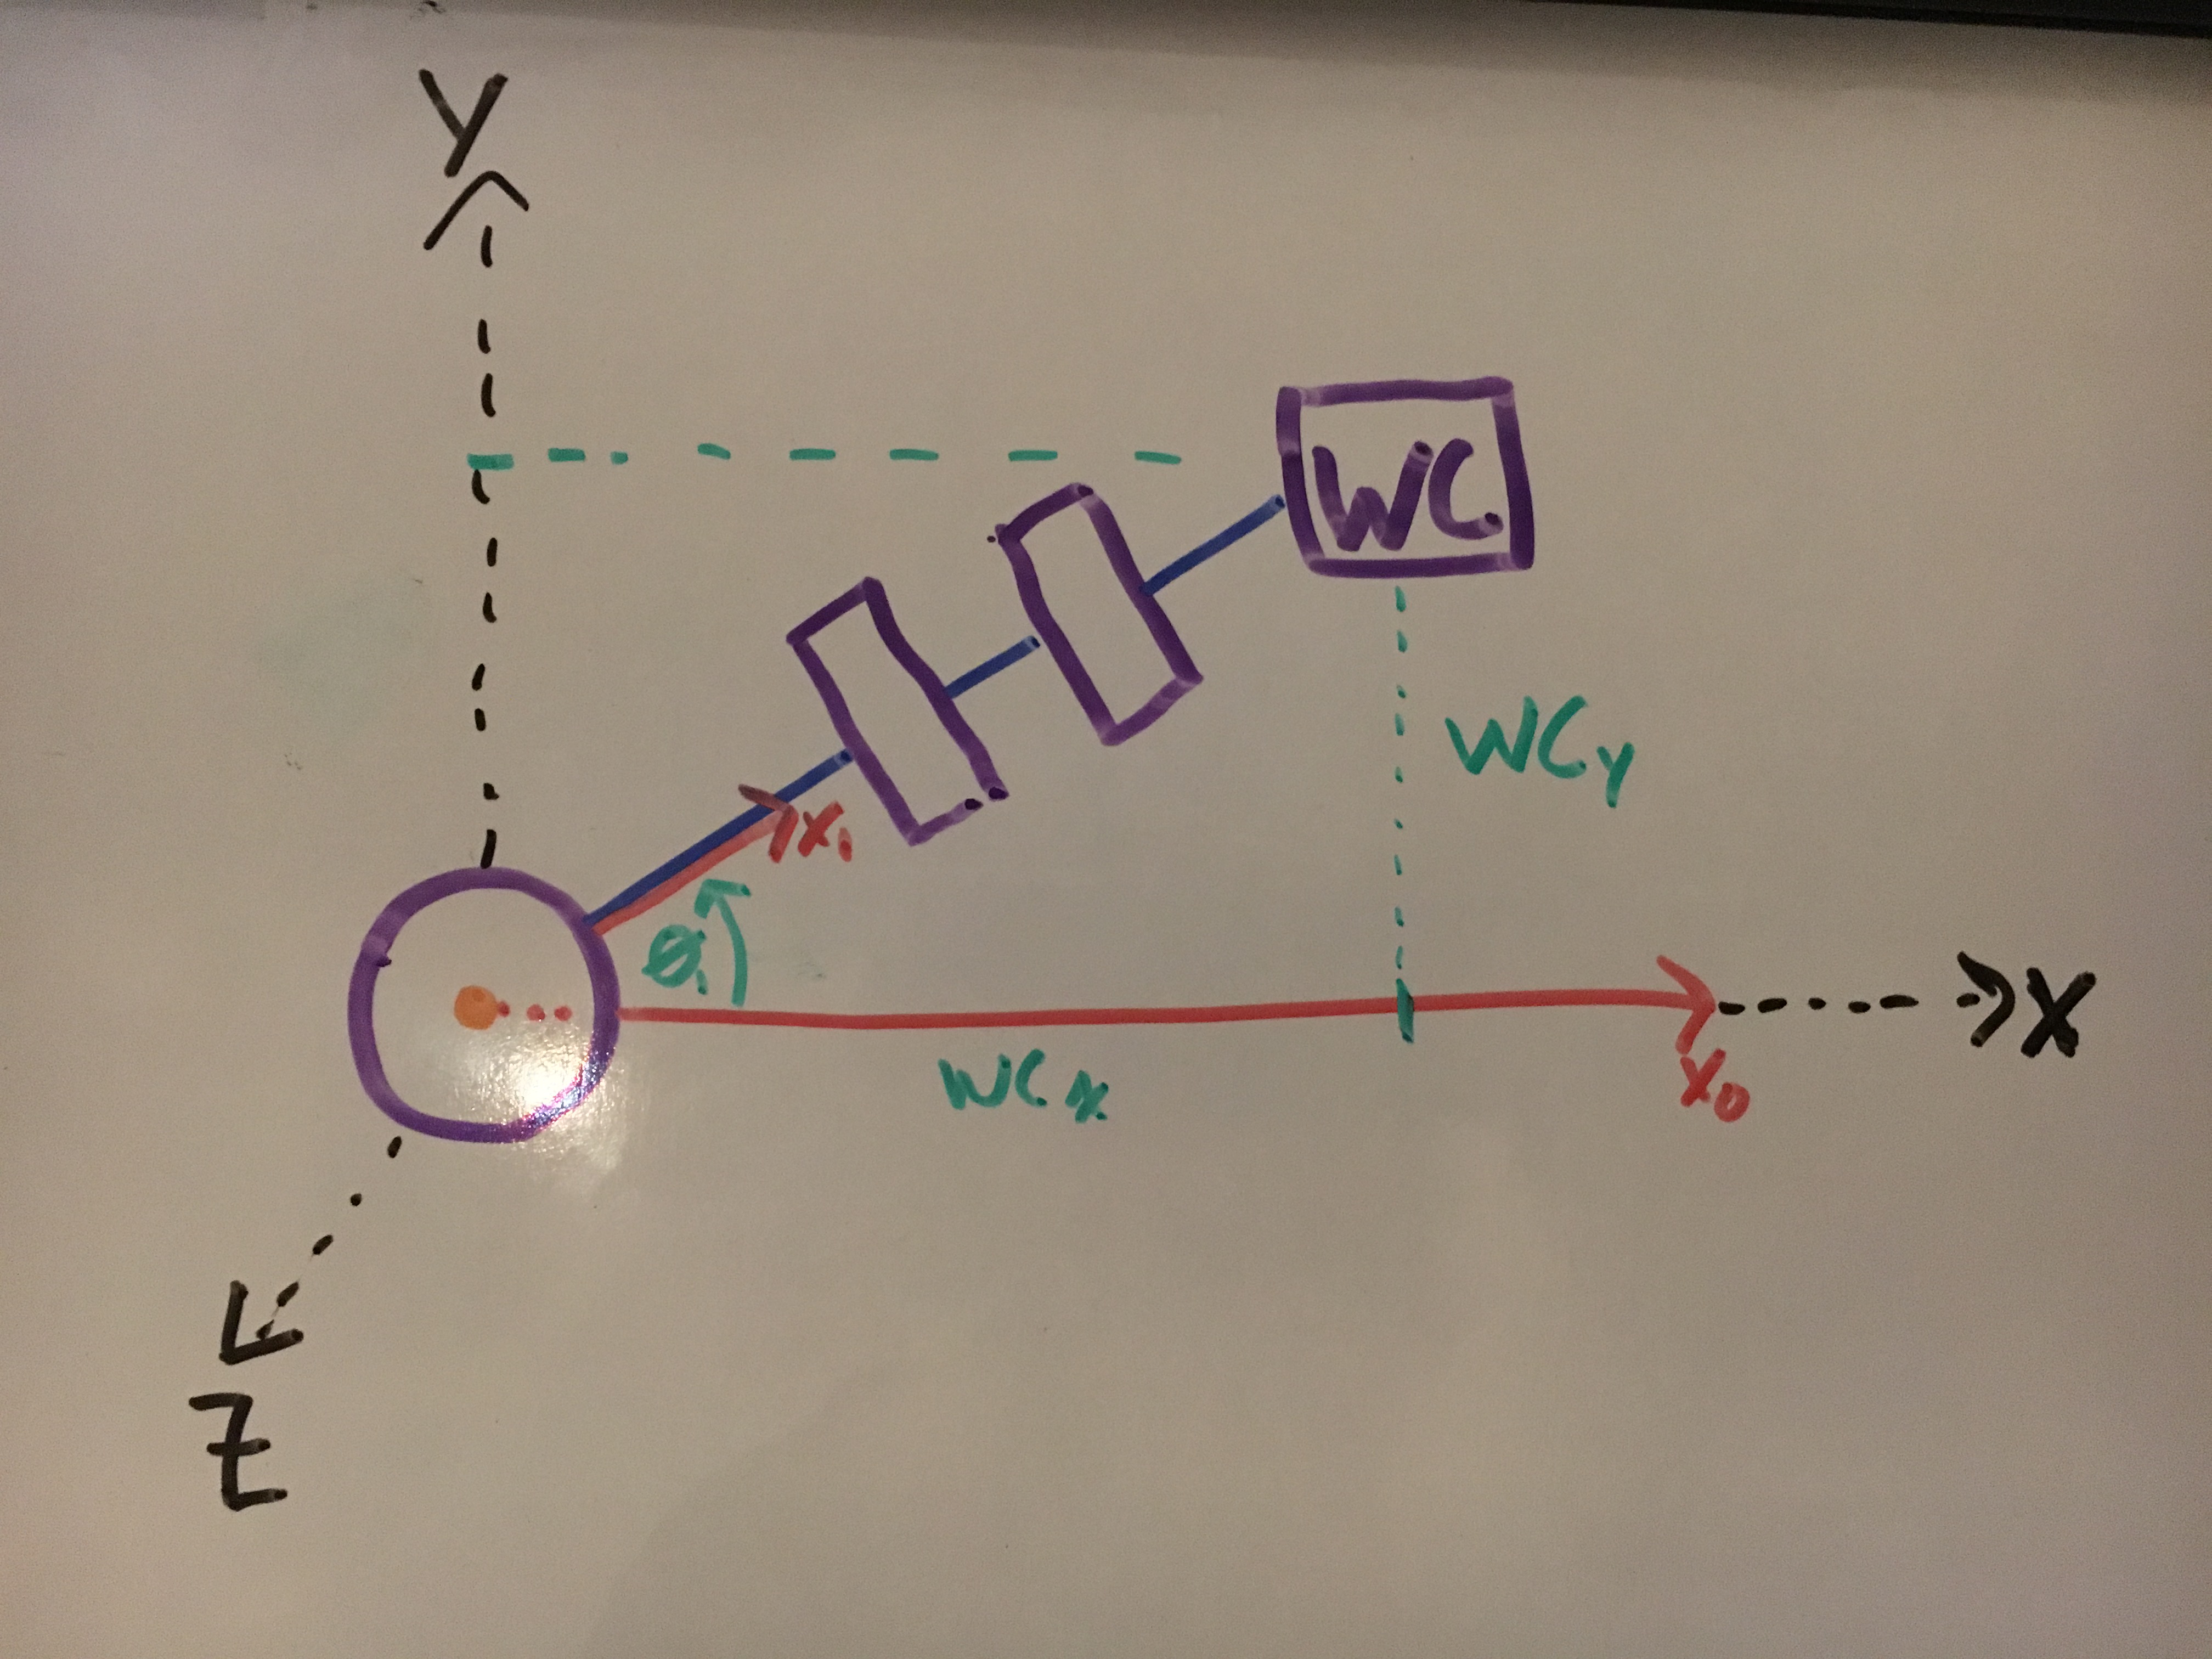 Y
WC.
WCY
X1
θ1
X
WCX
X0
Z